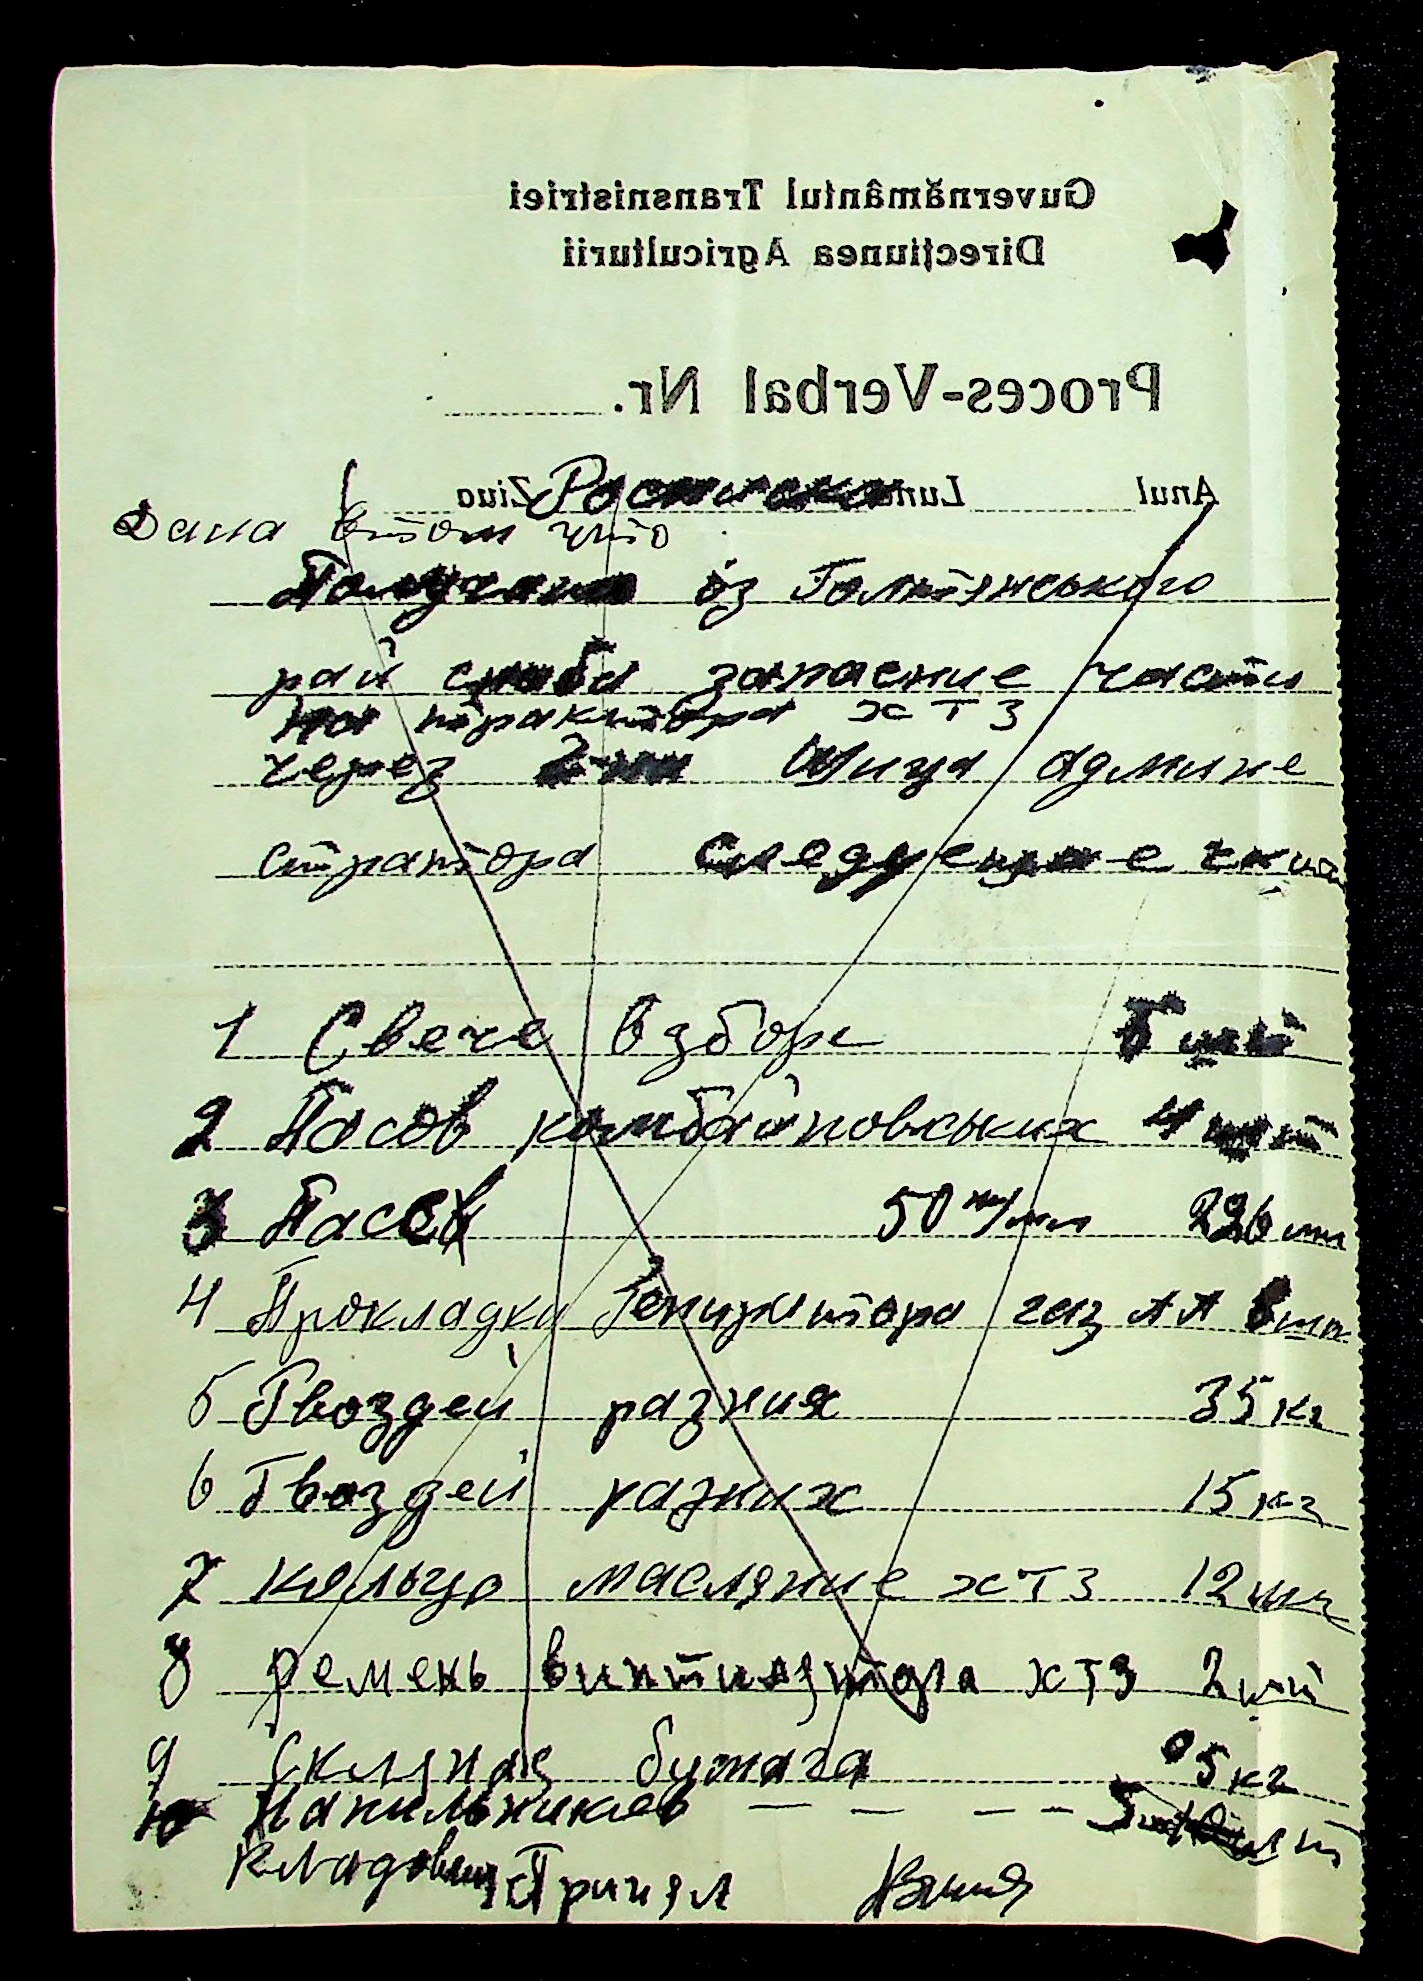 Guvernământul Transnistriei
Direcțiunea Agriculturii
Proces-Verbal Nr.
Anul Luna Ziua
Росписка
Дана втом что
Получано із Голтянського
рай снаба запасние части
на трактора ХТЗ
через Шица админе
стратора следующие
1 Свече взборе 5 шт
2 Пасов комбайновських 4 шт
3 Пасов 50 м/м 226
4 Прокладки газ АА 6 шт
5 Гвоздей разних 35 кг
6 Гвоздей разних 15 кг
7 кольцо масляние ХТЗ 12 шт
8 ремень винтилятора ХТЗ 2 шт
9 Скляная бумага 05 кг
10 Напильникев — — — — 5
кладовщ Принял